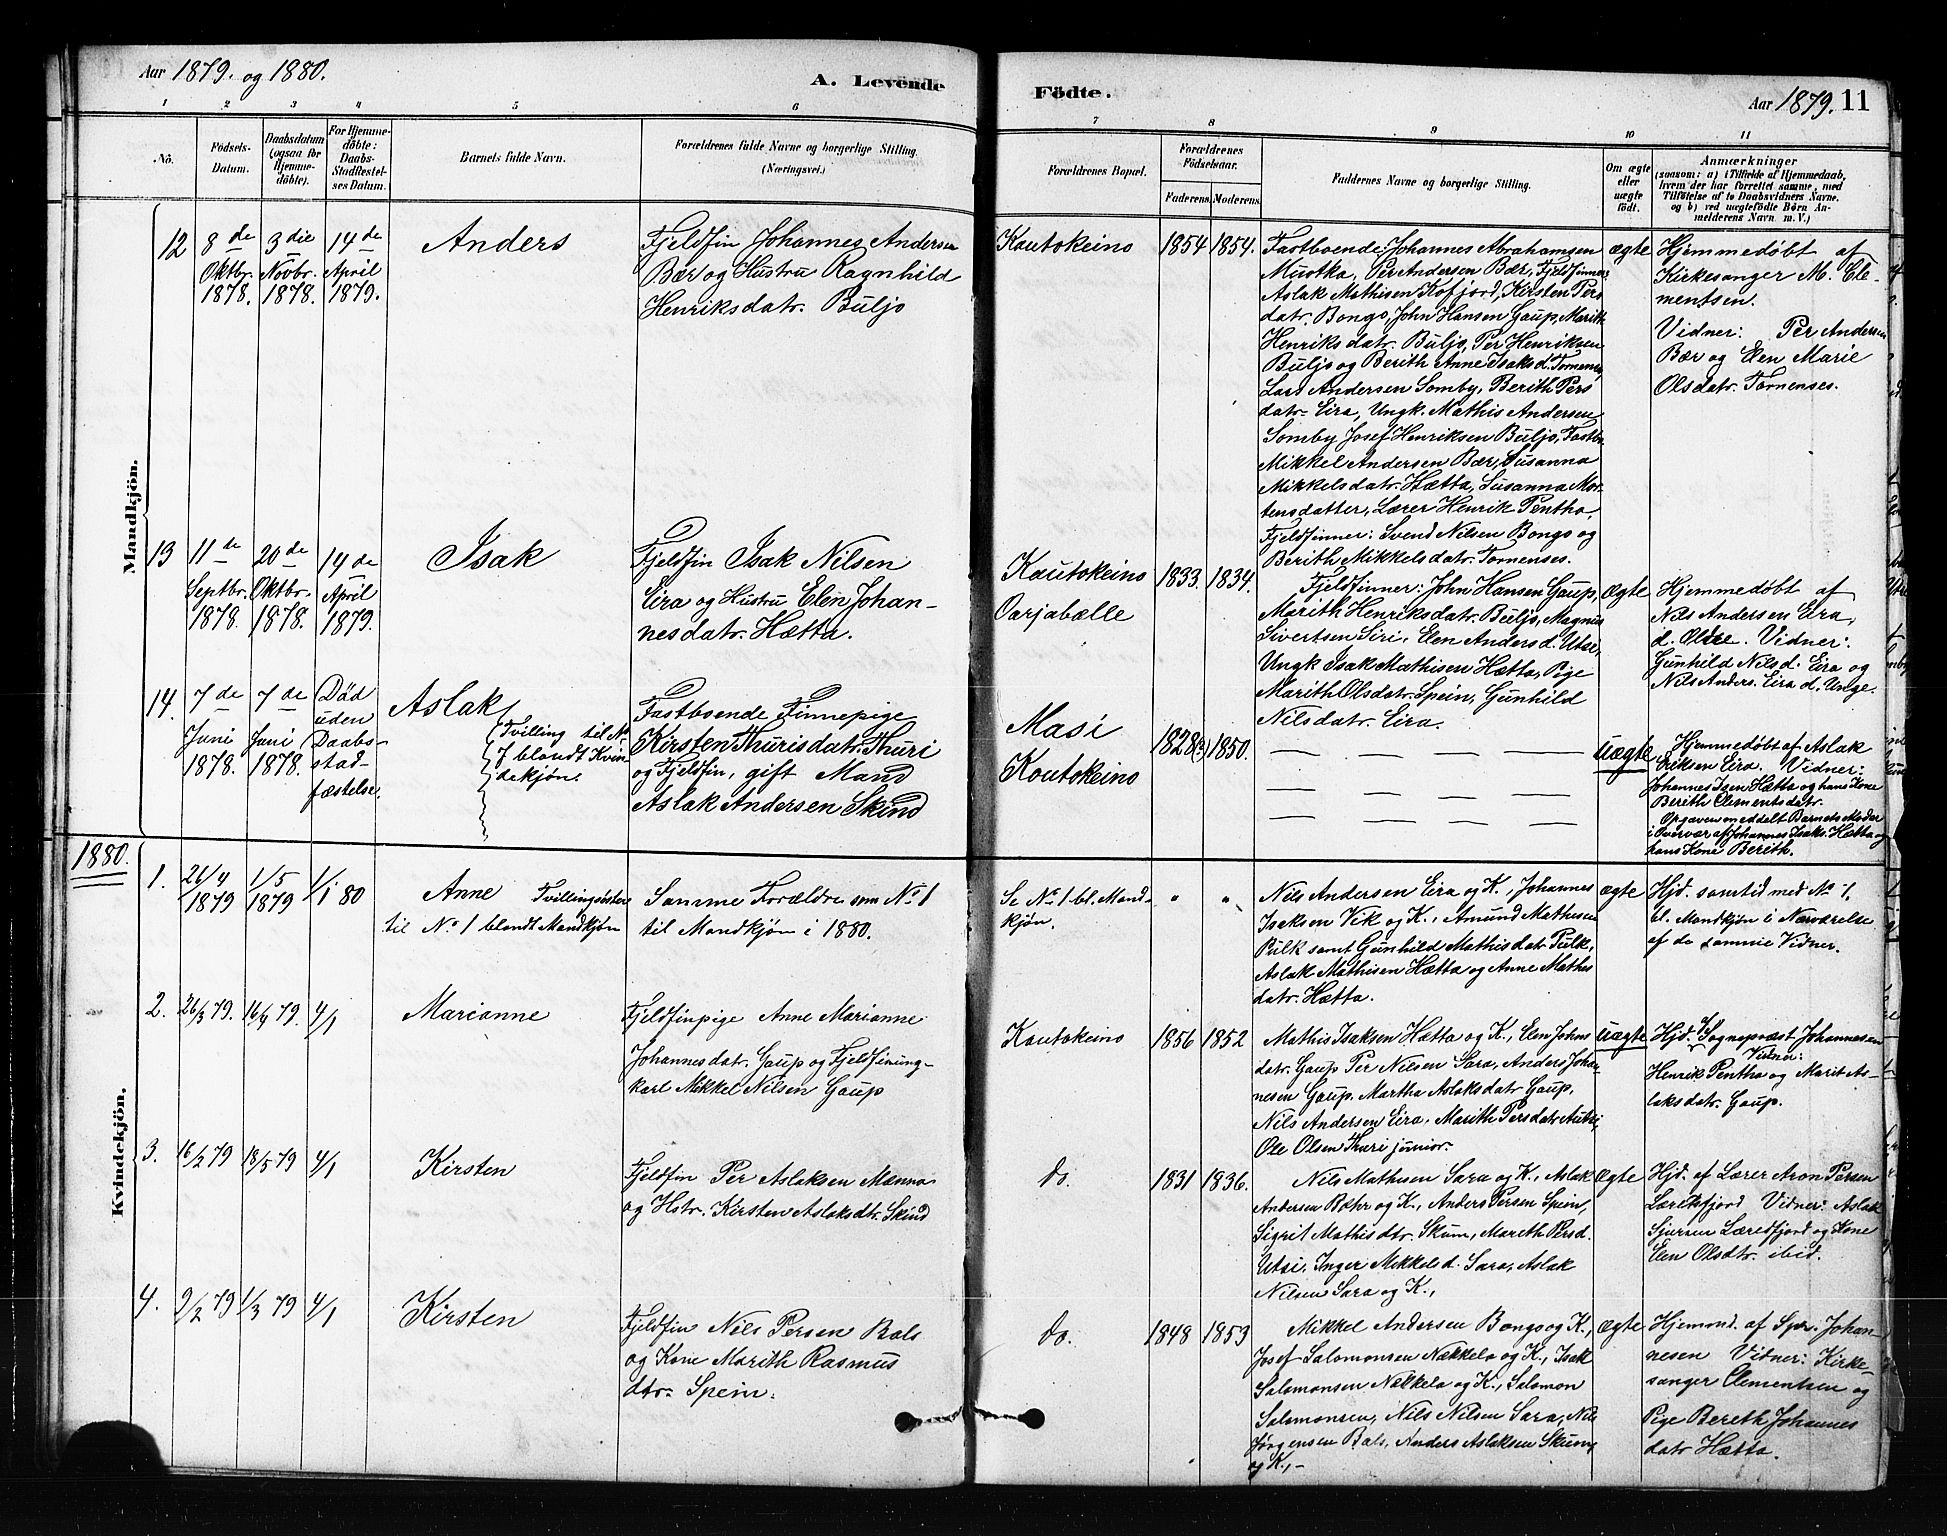 Aar 1879. og 1880.
A. Levende
Födte.
Aar 1879. 11
1 2 3 4 5 6 7 8 9 10 11
No.
Födsels-
Datum.
Daabsdatum
(ogsaa for
Hjemme-
döbte).
For Hjemme-
döbte:
Daabs-
Stadfæstel-
ses Datum.
Barnets fulde Navn.
Forældrenes fulde Navne og borgerlige Stilling.
(Næringsvei.)
Forældrenes Bopæl.
Forældrenes
Födselsaar.
Faderens. Moderens.
Faddernes Navne og borgerlige Stilling.
Om ægte
eller
uægte
födt.
Anmærkninger
(saasom: a) i Tilfælde af Hjemmedaab,
hvem der har forrettet samme, med
Tilföielse af to Daabsvidners Navne.
og b) ved uægtefödte Börn An-
melderens Navn m. V.)
Mandkjön.
12
8de
Oktbr.
1878.
3die
Novbr.
1878.
14de
April
1879.
Anders
Fjeldfin Johannes Andersen
Bær og Hustru Ragnhild
Henriksdatr. Buljo
Kautokeino
1854 1854.
Fastboende: Johannes Abrahamsen
Muotka, Per Andersen Bær, Fjeldfinner:
Aslak Mathisen Kofjord, Kirsten Pers
datr. Bongo, John Hansen Gaup, Marith
Henriks datr. Buljo, Per Henriksen
Buljo og Berith Anne Isaks d. Tornensis,
Lars Andersen Somby, Berith Pers
datr. Eira, Ungk. Mathis Andersen
Somby Josef Henriksen Buljo, Fastb.
Mikkel Andersen Bær, Susanna
Mikkelsdatr. Hætta, Susanna Mor-
tensdatter, Lærer Henrik Pentha,
Fjeldfinner: Svend Nilsen Bongo og
Berith Mikkelsdatr. Tornenses.
ægte
Hjemmedøbt af
Kirkesanger M. Cle-
mentsen.
Vidner: Per Andersen
Bær og Elen Marie
Olsdatr. Tornenses.
13
11de
Septbr.
1878.
20de
Oktbr.
1878.
14de
April
1879.
Isak
Fjeldfin Isak Nilsen
Eira og Hustru Elen Johan-
nesdatr. Hætta.
Kautokeino
Oarjabælle
1833. 1834.
Fjeldfinner: John Hansen Gaup,
Marith Henriksdatr. Buljo, Magnus
Sivertsen Siri, Elen Anders d. Utsi,
Ungk Isak Mathisen Hætta, Pige
Marith Olsdatr. Spein, Gunhild
Nilsdatr. Eira.
ægte
Hjemmedøbt af
Nils Andersen Eira,
d. Olske. Vidner:
Gunhild Nilsd. Eira og
Nils Anders. Eira d. Unge.
14.
7de
Juni
1878.
7de
Juni
1878.
Død
uden
Daabs-
stad-
fæstelse.
Aslak
(Tvilling til No
7 blandt Kvin
dekjøn.
Fastboende Finnepige
Kirsten Thurisdatr. Thuri
og Fjeldfin, gift Mand
Aslak Andersen Skind
Masi
Kautokeino
1828(?) 1850.
uægte
Hjemmedøbt af Aslak
Eriksen Eira. Vidner:
Johannes Isen Hætta og hans Kone
Berith Clementsdatr.
Opgaven meddelt Barnets Moder
i Overvær af Johannes Isaks. Hætta og
hans Kone Berith.
1880.
Kvindekjön.
1.
26/4
1879
1/5
1879
1/1 80
Anne Tvillingsøster
til No 1 blandt Mandkjøn
Samme Forældre som No 1
til Mandkjøn i 1880.
Se No 1 bl. Mand-
kjøn.
" "
Nils Andersen Eira og K., Johannes
Isaksen Vik og K., Amund Mathisen
Pulk samt Gunhild Mathisdatr Pulk,
Aslak Mathisen Hætta og Anne Mathis
datr. Hætta.
ægte
Hjd. samtid med No 1,
bl. Mandkjøn i Nærværelse
af de samme Vidner.
2.
26/3 79. 16/4 79. 4/1
Marianne
Fjeldfinpige Anne Marianne
Johannesdatr. Gaup og Fjeldfinung-
karl Mikkel Nilsen Gaup
Kautokeino
1856 1852
Mathis Isaksen Hætta og K., Elen Johns
datr. Gaup Per Nilsen Sara, Anders Johan-
nesen Gaup, Martha Aslaksdatr Gaup,
Nils Andersen Eira, Marith Persdatr Autsi,
Ole Olsen Thuri junior.
uægte
Hjd. af Sogneprest Johannesen
Vidner:
Henrik Pentha og Marit As-
laksdatr. Gaup.
3.
16/2 79 18/5 79 4/1
Kirsten
Fjeldfin Per Aslaksen Mænna
og Hstr. Kirsten Aslaksdtr. Skind
do.
1831 1836.
Nils Mathisen Sara og K., Aslak
Andersen Bæhr og K., Anders Persen Spein,
Sigrit Mathisdtr. Skum, Mareth Persd.
Utsi, Inger Mikkelsd. Sara, Aslak
Nilsen Sara og K.,
Ægte
Hjd. af Lærer Aron Persen
Læretfjord Vidner: Aslak
Sjursen Læredfjord og Kone
Elen Olsdtr. ibid.
4.
9/2 79 1/3 79 4/1
Kirsten
Fjeldfin Nils Persen Bals
og Kone Marith Rasmus
dtr. Spein.
do.
1848 1853
Mikkel Andersen Bongo og K.,
Josef Salomonsen Nækkela og K., Isak
Salamonsen Nækkela og K., Salomon
Salomonsen, Nils Nilsen Sara, Nils
Jørgensen Bals, Anders Aslaksen Skum,
og K.,-
ægte
Hjemmd. af Spr. Johan-
nesen Vidner: Kirke-
sanger Clementsen og
Pige Bereth Johannes
datr Hætta.